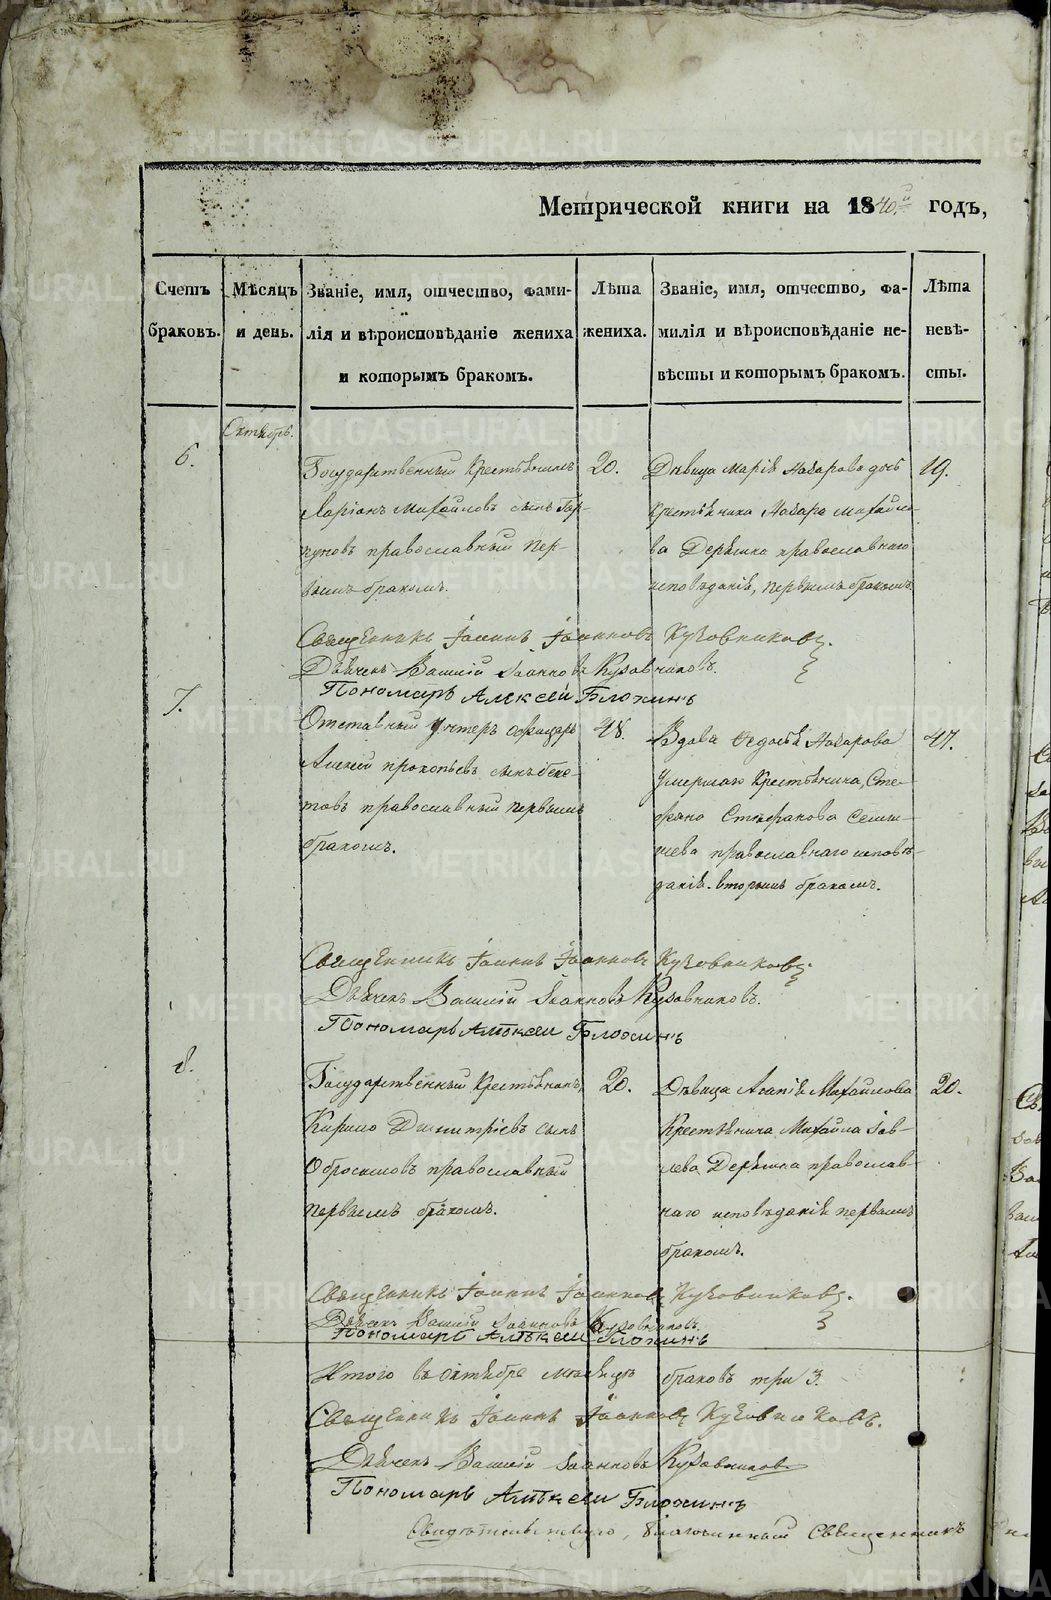 Метрической книги на 1840й годъ,
Счетъ браковъ.
Мѣсяцъ и день.
Званіе, имя, отчество, фами-
лія и вѣроисповѣданіе жениха
и которымъ бракомъ.
Лѣта жениха.
Званіе, имя, отчество, фа-
милія и вѣроисповѣданіе не-
вѣсты и которымъ бракомъ.
Лѣта невѣ-
сты.
Октябрь.
6.
Государственный Крестьянинъ
Ларіонъ Михайловъ сынъ
православный пер-
вымъ бракомъ.
20.
Дѣвица Марія Назарова дочь
крестьянина Назара Михайло-
ва православнаго
исповѣданія, первымъ бракомъ.
19.
Священникъ Іоаннъ Іоанновъ Кузовниковъ.
Дьячекъ Василій Іоанновъ Кузовниковъ.
Пономарь Алексѣй Блохинъ
7.
Отставный Унтеръ офицеръ
Алексѣй Прокопьевъ сынъ Беке-
товъ православный первымъ
бракомъ.
48.
Вдова Федосья Назарова
умершаго Крестьянина, Сте-
фана Стефанова
православнаго исповѣ-
данія вторымъ бракомъ.
47.
Священникъ Іоаннъ Іоанновъ Кузовниковъ
Дьячекъ Василій Іоанновъ Кузовниковъ.
Пономарь Алексѣй Блохинъ
8.
Государственный Крестьянинъ
Кирило Димитріевъ сынъ
Обросимовъ православный
первымъ бракомъ.
20.
Дѣвица Агапія Михайлова
Крестьянина Михайла
православ-
наго исповѣданія первымъ
бракомъ.
20.
Священникъ Іоаннъ Іоанновъ Кузовниковъ.
Дьячекъ Василій Іоанновъ Кузовниковъ.
Пономарь Алексѣй Блохинъ
Итого въ Октябрѣ мѣсяцѣ браковъ три 3.
Священникъ Іоаннъ Іоанновъ Кузовниковъ.
Дьячекъ Василій Іоанновъ Кузовниковъ
Пономарь Алексѣй Блохинъ
Свидѣтельствовалъ, Благочинный Священникъ
METRIKI.GASO-URAL.RU